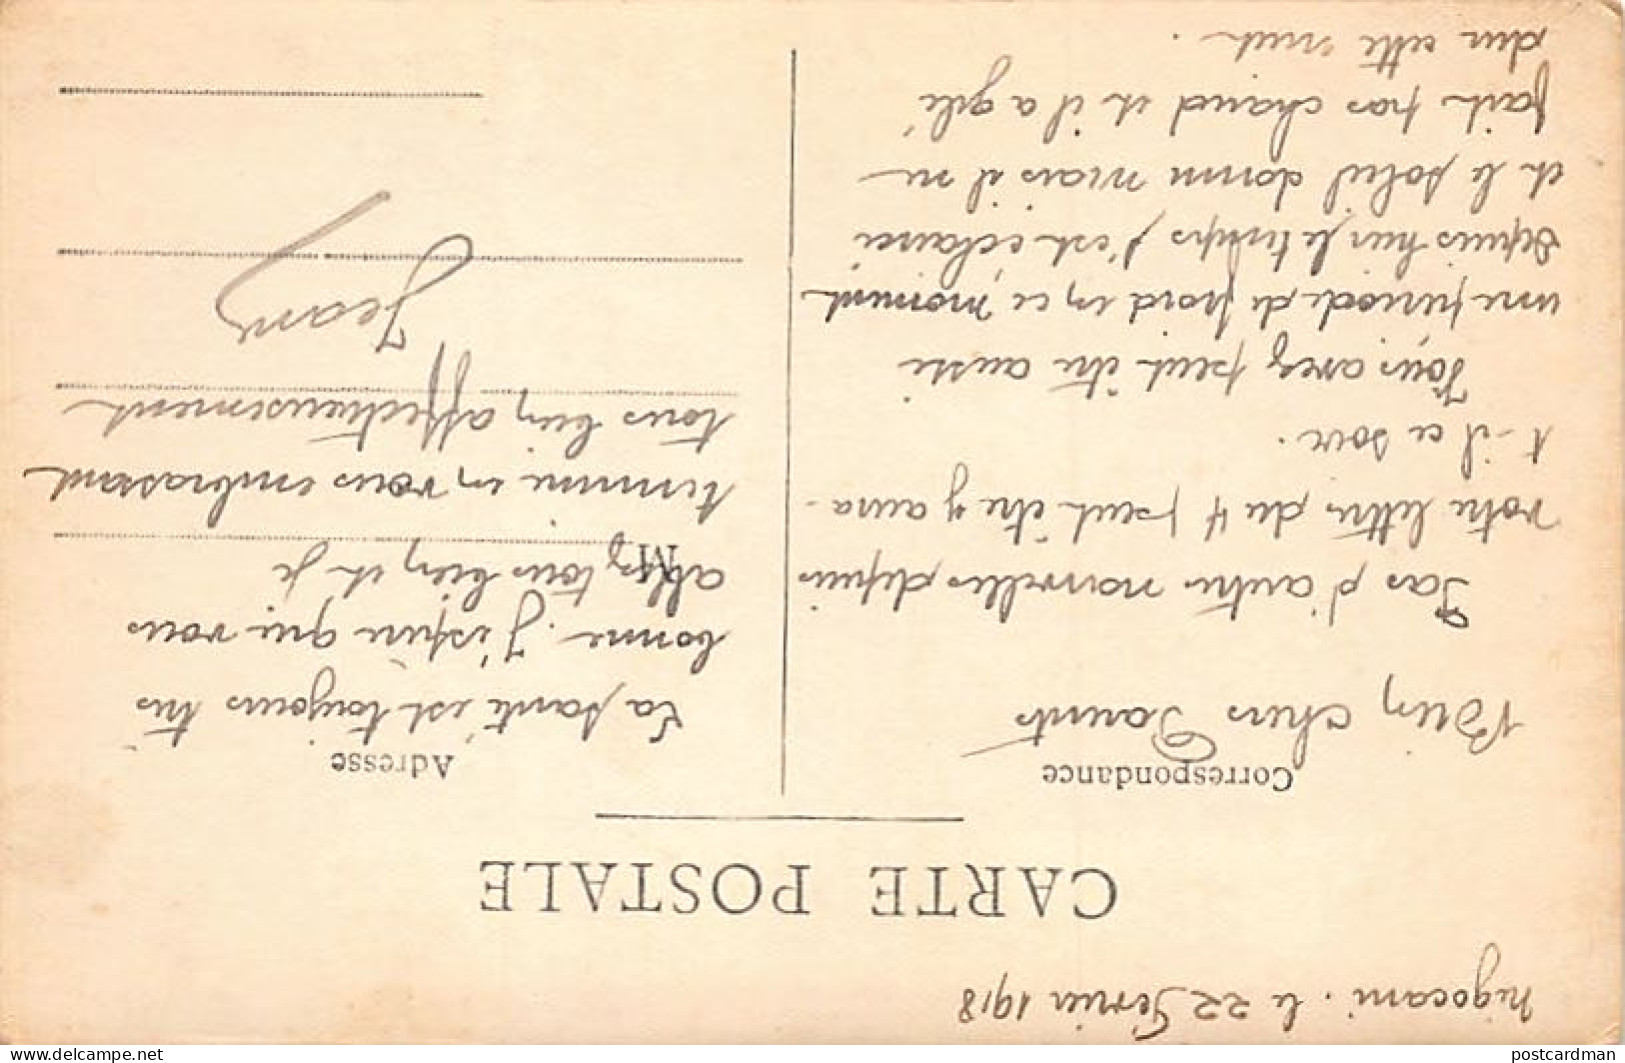 Negocani. le 22 Février 1918
CARTE POSTALE
Correspondance
Bien chers Parents
Pas d'autres nouvelles depuis
votre lettre du 4 peut être y aura-
t-il ce soir.
Vous avez peut être aussi
une période de froid en ce moment
depuis hier le temps s'est éclairci
et le soleil donne mais il ne
fait pas chaud et il a gelé
dur cette nuit.
Adresse
La santé est toujours très
bonne. J'espère que vous
allez tous bien et je
M
termine en vous embrassant
tous bien affectueusement
Jean
postcardman